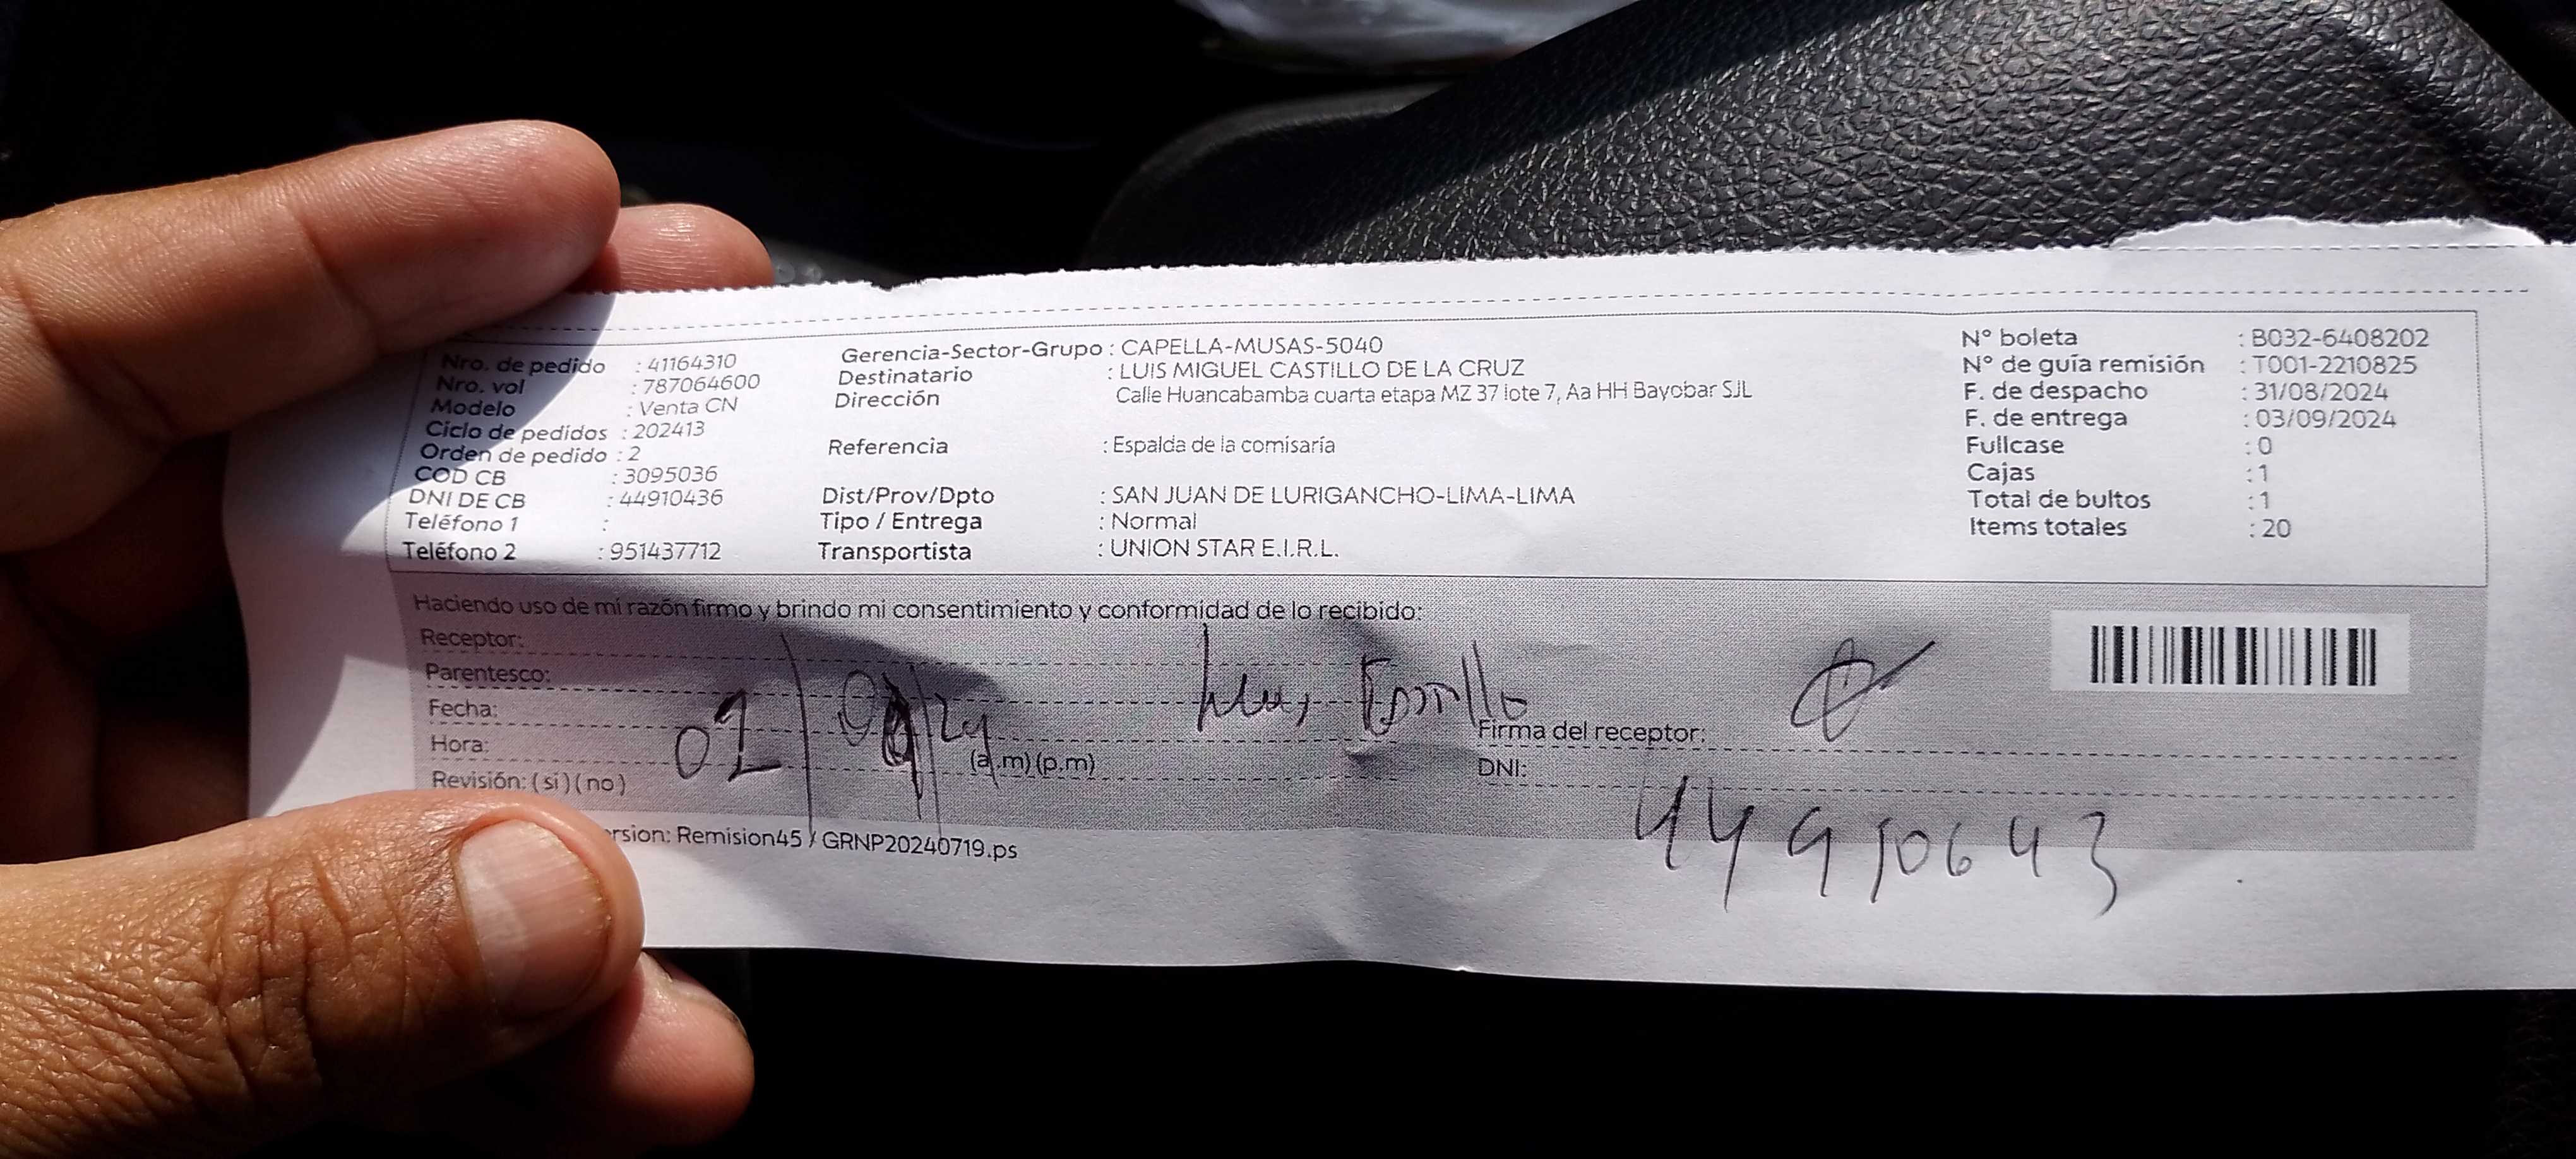 Nro. de pedido : 41164310
Nro. vol : 787064600
Modelo : Venta CN
Ciclo de pedidos : 202413
Orden de pedido : 2
COD CB : 3095036
DNI DE CB : 44910436
Teléfono 1 :
Teléfono 2 : 951437712
Gerencia-Sector-Grupo : CAPELLA-MUSAS-5040
Destinatario : LUIS MIGUEL CASTILLO DE LA CRUZ
Dirección Calle Huancabamba cuarta etapa MZ 37 lote 7, Aa HH Bayobar SJL
Referencia : Espalda de la comisaría
Dist/Prov/Dpto : SAN JUAN DE LURIGANCHO-LIMA-LIMA
Tipo / Entrega : Normal
Transportista : UNION STAR E.I.R.L.
N° boleta : B032-6408202
N° de guía remisión : T001-2210825
F. de despacho : 31/08/2024
F. de entrega : 03/09/2024
Fullcase : 0
Cajas : 1
Total de bultos : 1
Items totales : 20
Haciendo uso de mi razón firmo y brindo mi consentimiento y conformidad de lo recibido:
Receptor:
Parentesco:
Fecha:
Hora: (a.m)(p.m)
Revisión: (si)(no)
Firma del receptor:
DNI:
44910643
rsion: Remision45 / GRNP20240719.ps